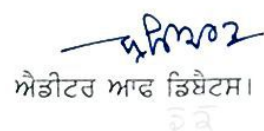 ਐਡੀਟਰ ਆਫ ਡਿਬੈਟਸ।